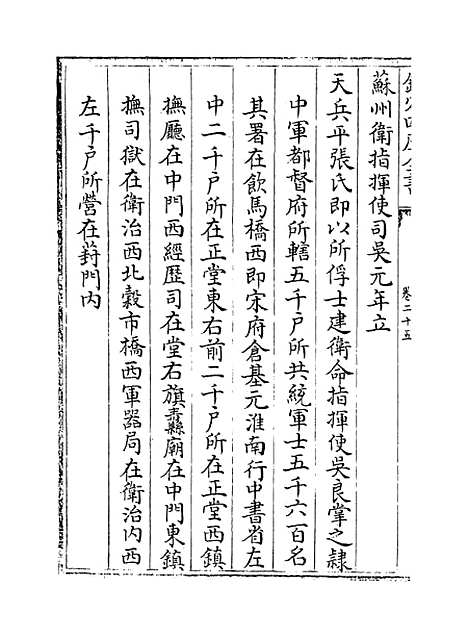 欽定四庫全書
卷二十五
蘇州衛指揮使司吳元年立
天兵平張氏即以所俘士建衛命指揮使吳良掌之隷
中軍都督府所轄五千戶所共統軍士五千六百名
其署在飲馬橋西即宋府倉基元淮南行中書省左
中二千戶所在正堂東右前二千戶所在正堂西鎮
撫廳在中門西經歷司在堂右旗纛廟在中門東鎮
撫司獄在衛治西北穀市橋西軍器局在衛治内西
左千戶所營在葑門内